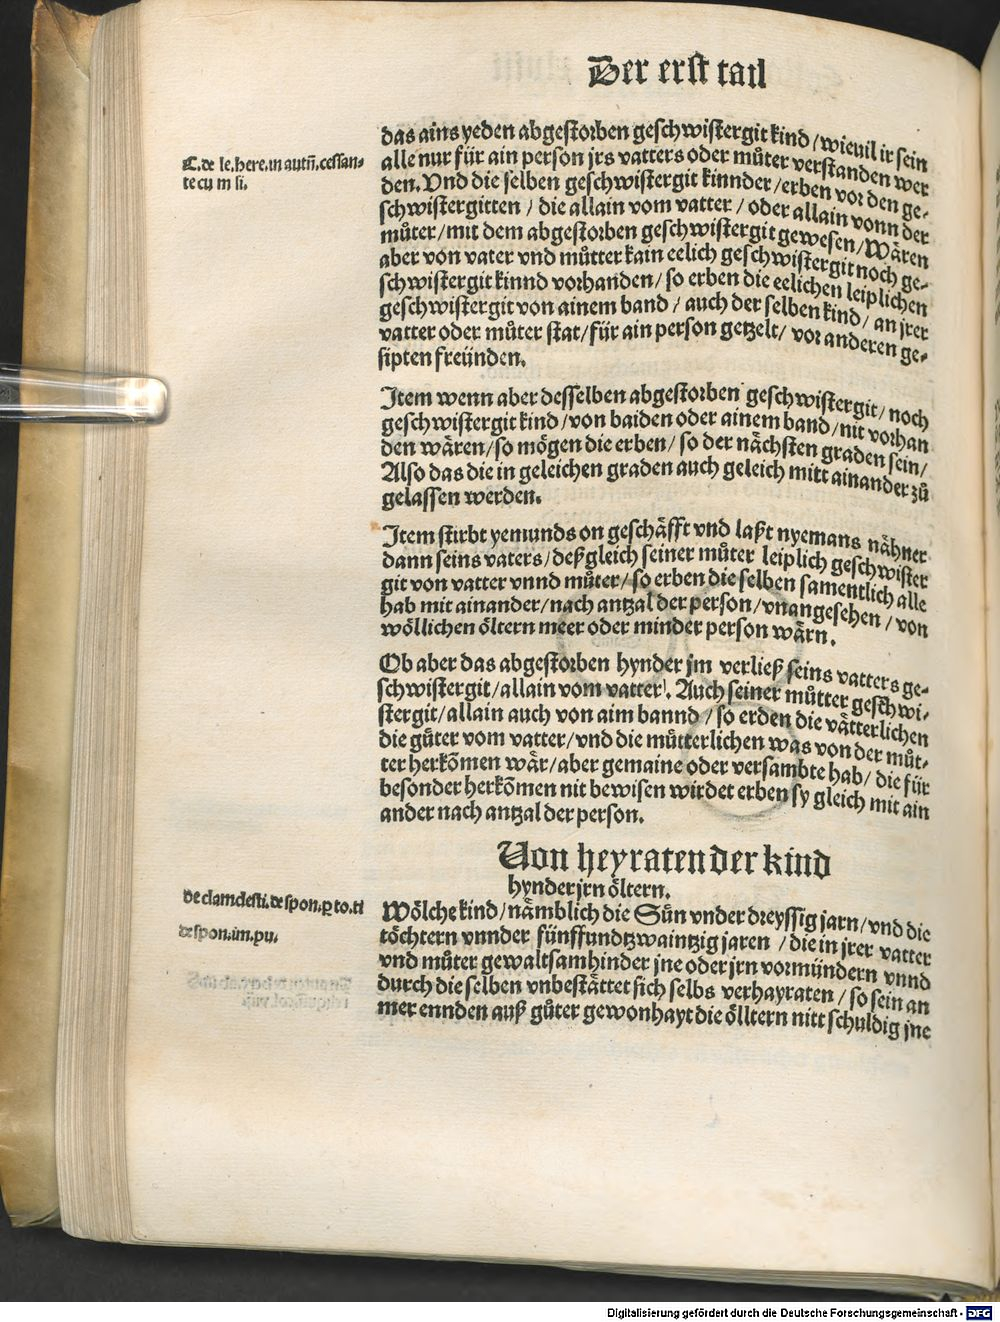 Der erst tail
das ains yeden abgestorben geschwistergit kind / wieuil ir sein
alle nur für ain person jrs vatters oder můter verstanden wer
den. Vnd die selben geschwistergit kinnder / erben vor den ge⸗
schwistergitten / die allain vom vatter / oder allain vonn der
můter / mit dem abgestorben geschwistergit gewesen / Wären
aber von vater vnd můtter kain eelich geschwistergit noch ge⸗
schwistergit kinnd vorhanden / so erben die eelichen leiplichen
geschwistergit von ainem band / auch der selben kind / an jrer
vatter oder můter stat / für ain person getzelt / vor anderen ge⸗
sipten freünden.
C. de le. here. in autñ. cessan⸗
te cu m si.
Jtem wenn aber desselben abgestorben geschwistergit / noch
geschwistergit kind / von baiden oder ainem band / nit vorhan
den wären / so mögen die erben / so der nächsten graden sein /
Also das die in geleichen graden auch geleich mitt ainander zů
gelassen werden.
Jtem stirbt yemunds on geschäfft vnd laßt nyemans nähner
dann seins vaters / deßgleich seiner můter leiplich geschwister
git von vatter vnnd můter / so erben die selben samentlich alle
hab mit ainander / nach antzal der person / vnangesehen / von
wöllichen öltern meer oder minder person wärn.
Ob aber das abgestorben hynder jm verließ seins vatters ge⸗
schwistergit / allain vom vatter. Auch seiner můtter geschwi⸗
stergit / allain auch von aim bannd / so erden die vätterlichen
die gůter vom vatter / vnd die můtterlichen was von der můt⸗
ter herkõmen wär / aber gemaine oder versambte hab / die für
besonder herkõmen nit bewisen wirdet erben sy gleich mit ain
ander nach antzal der person.
Von heyraten der kind
hynder jrn öltern.
Wölche kind / nämblich die Sün vnder dreyssig jarn / vnd die
töchtern vnnder fünffundtzwaintzig jaren / die in jrer vatter
vnd můter gewaltsam hinder jne oder jrn vormündern vnnd
durch die selben vnbestättet sich selbs verhayraten / so sein an
mer ennden auß gůter gewonhayt die ölltern nitt schuldig jne
de clamdesti. de spon. ꝑ to. ti
de spon. im. pu.
Digitalisierung gefördert durch die Deutsche Forschungsgemeinschaft - DFG